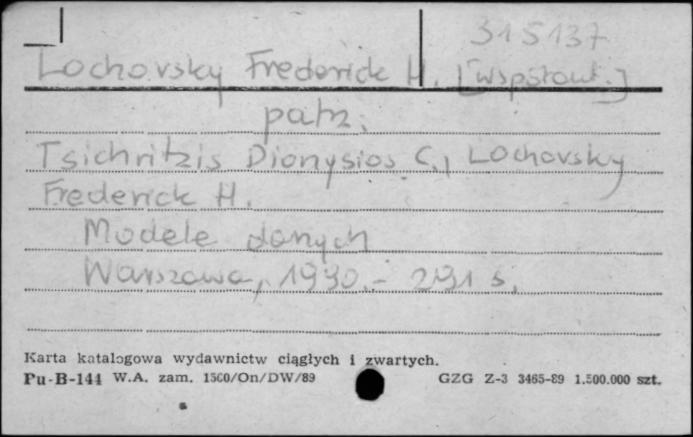 315137
Lochovsky Frederick H. [współaut.]
patrz:
Tsichritzis Dionysios C., Lochovsky
Frederick H.
Modele danych
Warszawa, 1990.- 291 s.
Karta katalogowa wydawnictw ciągłych i zwartych.
Pu-B-144 W.A. zam. 1500/On/DW/89 GZG Z-3 3465-89 1.500.000 szt.